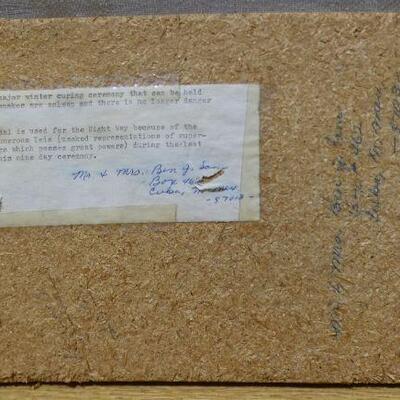 major winter curing ceremony that can be held
snakes are asleep and there is no longer danger
ial is used for the Night Way because of the
umerous Yeis (masked representations of super-
s which posses great powers) during the last
his nine day ceremony.
Mr & Mrs. Ben J.
Box
Cuba, N. Mex
- 87013 -
Mr & Mrs. Ben J.
Cuba, N. Mex